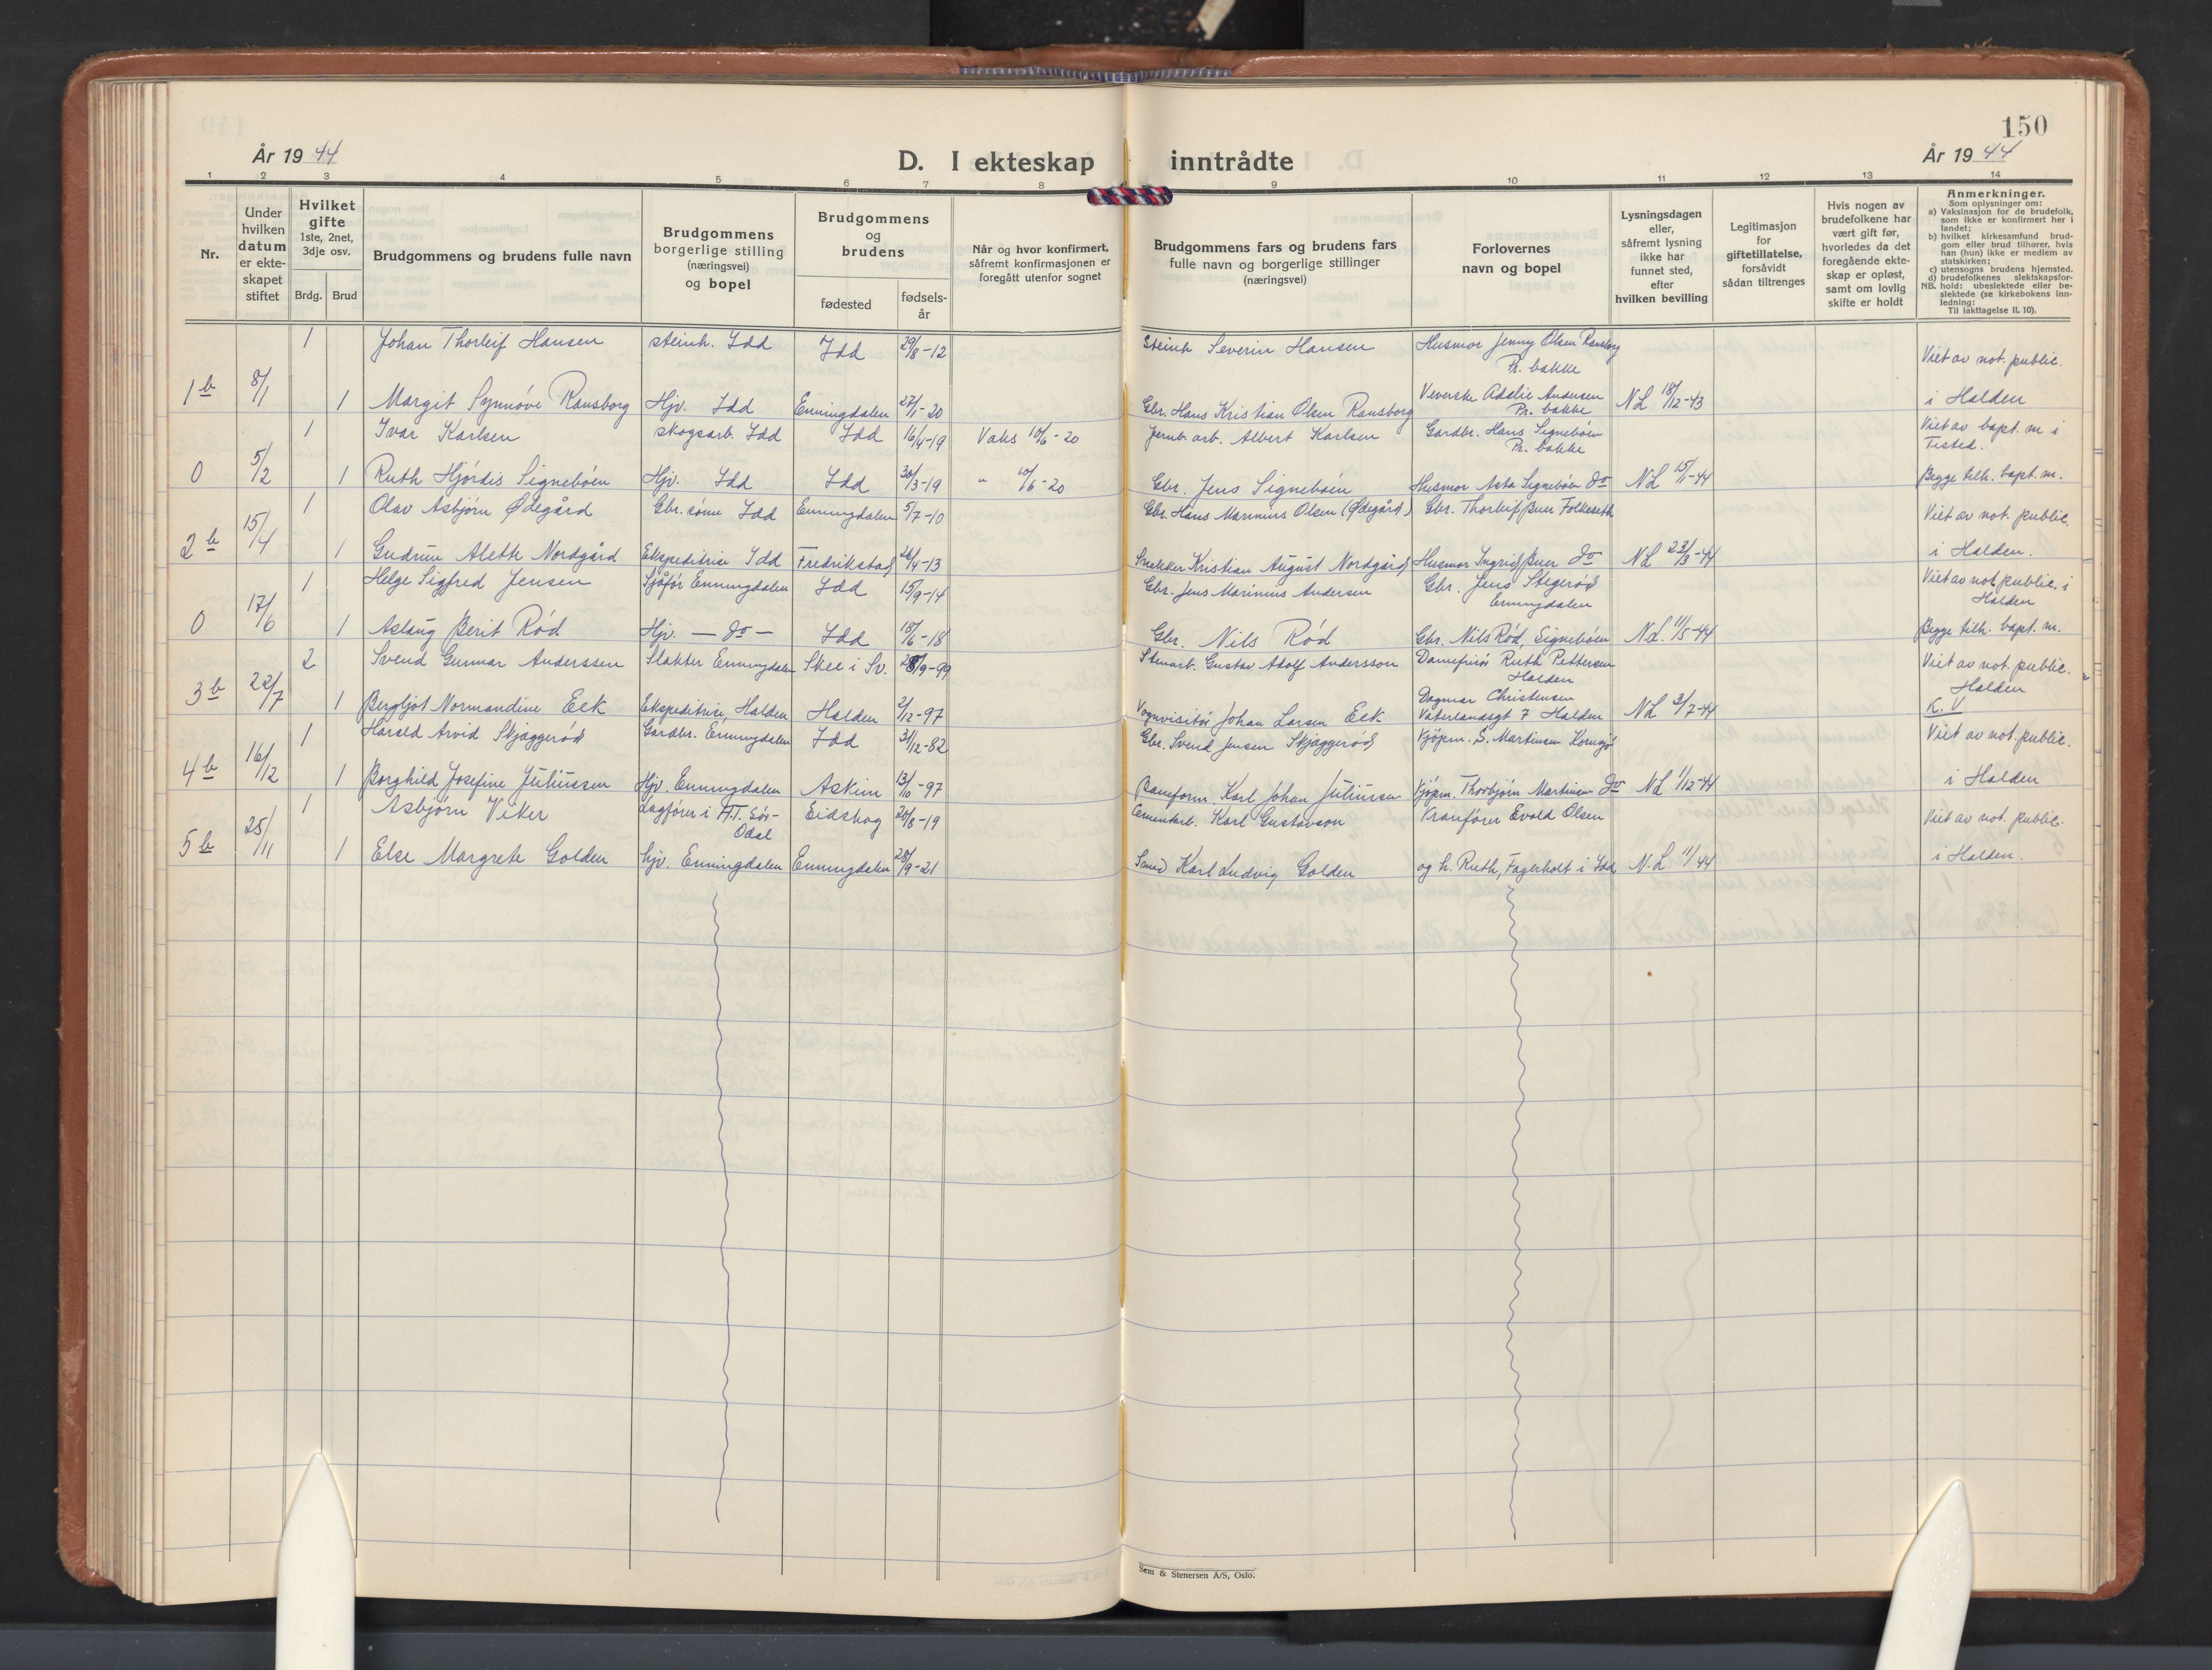 150
År 1944
D. I ekteskap inntrådte
År 1944
1 2 3 4 5 6 7 8 9 10 11 12 13 14
Nr.
Under hvilken datum er ekteskapet stiftet
Hvilket gifte 1ste, 2net, 3dje osv.
Brdg. Brud
Brudgommens og brudens fulle navn
Brudgommens borgerlige stilling (næringsvei) og bopel
Brudgommens og brudens
fødested
fødsels-år
Når og hvor konfirmert, såfremt konfirmasjonen er foregått utenfor sognet
Brudgommens fars og brudens fars fulle navn og borgerlige stillinger (næringsvei)
Forlovernes navn og bopel
Lysningsdagen eller, såfremt lysning ikke har funnet sted, efter hvilken bevilling
Legitimasjon for giftetillatelse, forsåvidt sådan tiltrenges
Hvis nogen av brudefolkene har vært gift før, hvorledes da det foregående ekteskap er opløst, samt om lovlig skifte er holdt
Anmerkninger.
Som oplysninger om:
a) Vaksinasjon for de brudefolk, som ikke er konfirmert her i landet;
b) hvilket kirkesamfund brudgom eller brud tilhører, hvis han (hun) ikke er medlem av statskirken;
c) utensogns brudens hjemsted.
d) brudefolkenes slektskapsforhold: ubeslektede eller beslektede (se kirkebokens innledning:
NB.
Til iakttagelse II. 10).
1 Johan Thorleif Hansen steinh. Idd Idd 29/8-12 Steinh Severin Hansen Husmor Jenny Olsen Ransborg Pr. bakke Viet av not. public.
1b 8/1 1 Margit Synnöve Ransborg Hjv. Idd Enningdalen 27/1-20 Gbr. Hans Kristian Olsen Ransborg Veverske Adelie Andersen Pr. bakke NL 18/12-43 i Halden
1 Ivar Karlsen skogsarb. Idd Idd 16/4-19 Vaks 10/6-20 Jernb. arb. Albert Karlsen Gardbr. Hans Signebøen Pr. bakke Viet av bapt. m i Tisted.
0 5/2 1 Ruth Hjördis Signebøen Hjv. Idd Idd 30/3-19 " 10/6-20 Gbr. Jens Signebøen Husmor Asta Signebøen do NL 15/1-44 Begge tilh. bapt. m.
1 Olav Asbjörn Ødegård Gbr. sönn Idd Enningdalen 5/7-10 Gbr. Hans Marinius Olsen (Ødegård) Gbr. Thorleif Buer Folkeseth Viet av not. public.
2b 15/4 1 Gudrun Aleth Nordgård Ekspeditrise Idd Fredrikstad 26/4-13 Snekker Kristian August Nordgård Husmor Ingrid Buer do NL 23/3-44 i Halden.
1 Helge Sigfred Jensen Sjåfør Enningdalen Idd 15/9-14 Gbr. Jens Marinius Andersen Gbr. Jens Stegerød Enningdalen Viet av not public. i Halden
0 17/6 1 Aslaug Berit Rød Hjv. — do — Idd 18/6-18 Gbr. Nils Rød Gbr. Nils Rød, Signebøen N.L. 11/5-44 Begge tilh. bapt. m.
2 Svend Gunnar Anderssen Slakter Enningdalen Skee i Sv. 28/9-99 Stenarb. Gustav Adolf Andersson Damefrisör Ruth Pettersen Halden Viet av not. public. Halden
3b 22/7 1 Bergljot Normandine Eek Ekspeditrise, Halden Halden 2/12-97 Vognvisitör Johan Larsen Eek Dagmar Christensen Vaterlandsgt 7 Halden NL 3/7-44 K. V
1 Harald Arvid Skjæggerød Gardbr. Enningdalen Idd 31/12-82 Gbr. Svend Jensen Skjæggerød Kjöpm. S. Martinsen Kornsjö Viet av not. public.
4b 16/12 1 Borghild Josefine Juliussen Hjv. Enningdalen Askim 13/10-97 Baneform. Karl Johan Juliussen Kjöpm. Thorbjörn Martinsen do NL 1/12-44 i Halden
1 Asbjørn Viker Lagfører i A.T. Sör-Odal Eidskog 20/8-19 Cementarb. Karl Gustavson Kranfører Evald Olsen Viet av not. public.
5b 25/11 1 Else Margrete Golden hjv. Enningdalen Enningdalen 28/9-21 Smed Karl Ludvig Golden og h. Ruth, Fagerholt i Idd N.L 11/44 i Halden.
Sem & Stenersen A/S, Oslo.